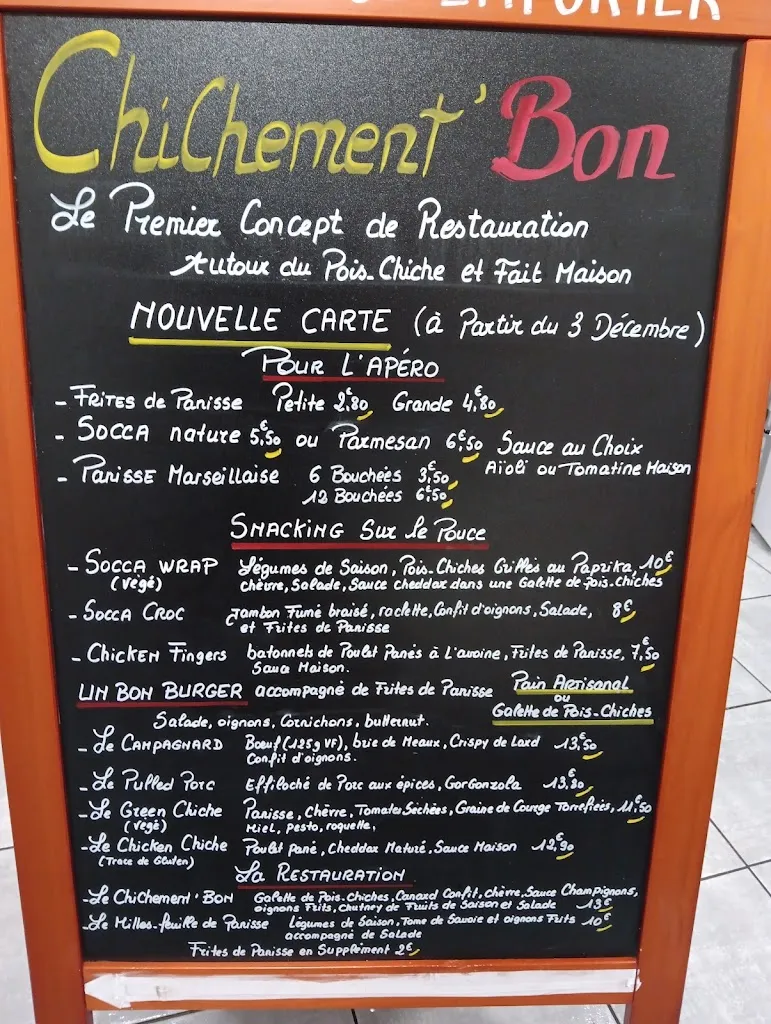 EMPORTER
ChiChement' Bon
Le Premier Concept de Restauration
Autour du Pois-Chiche et Fait Maison
NOUVELLE CARTE (à Partir du 3 Décembre)
POUR L'APÉRO
- FRITES de Panisse Petite 2€80 Grande 4€80
- SOCCA nature 5€50 ou Parmesan 6€50 Sauce au Choix
Aïoli ou Tomatine Maison
- PANISSE Marseillaise 6 Bouchées 3€50
12 Bouchées 6€50
SNACKING Sur le Pouce
- SOCCA WRAP Légumes de Saison, Pois-Chiches Grillés au Paprika, 10€
(Végé) chèvre, Salade, Sauce cheddar dans une Galette de Pois-chiches
- SOCCA CROC Jambon Fumé braisé, raclette, Confit d'oignons, Salade, 8€
et Frites de Panisse
- CHICKEN Fingers batonnets de Poulet Panés à L'avoine, Frites de Panisse, 7€50
Sauce Maison.
UN BON BURGER accompagné de Frites de Panisse Pain Artisanal
ou
Galette de Pois-Chiches
Salade, oignons, Cornichons, butternut.
- Le CAMPAGNARD Boeuf (125g VF), brie de Meaux, Crispy de Lard 13€50
Confit d'oignons.
- Le Pulled Porc Effiloché de Porc aux épices, Gorgonzola 13€80
- Le Green Chiche Panisse, Chèvre, Tomates Séchées, Graine de Courge Torrefiées, 11€50
(Végé) Miel, pesto, roquette,
- Le Chicken Chiche Poulet pané, Cheddar Maturé, Sauce Maison 12€90
(Trace de Gluten)
La RESTAURATION
- Le ChiChement'Bon Galette de Pois-Chiches, Canard Confit, chèvre, Sauce Champignons,
oignons Frits, Chutney de Fruits de Saison et Salade 13€
- Le Milles-feuille de Panisse Légumes de Saison, Tome de Savoie et oignons Frits 10€
accompagné de Salade
Frites de Panisse en Supplément 2€